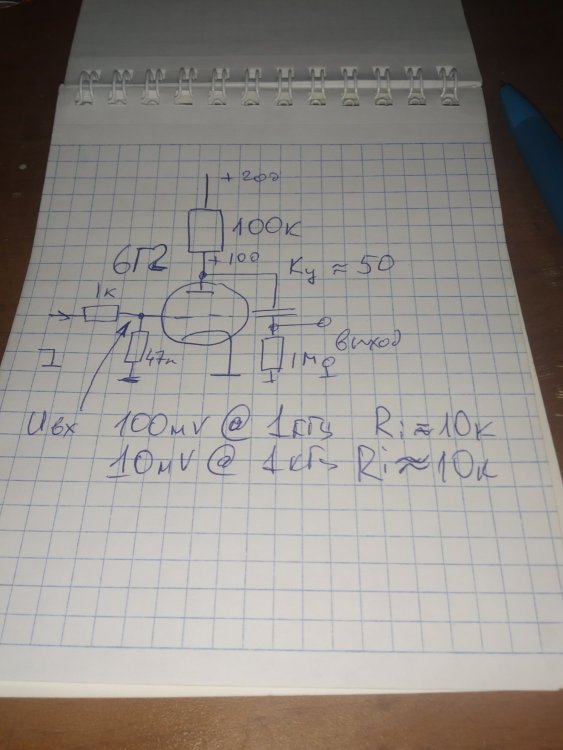 +200
100к
6Г2
+100
Kу ≈ 50
1к
47к
1М
выход
Uвх 100мV @ 1кГц Ri ≈ 10к
10мV @ 1кГц Ri ≈ 10к